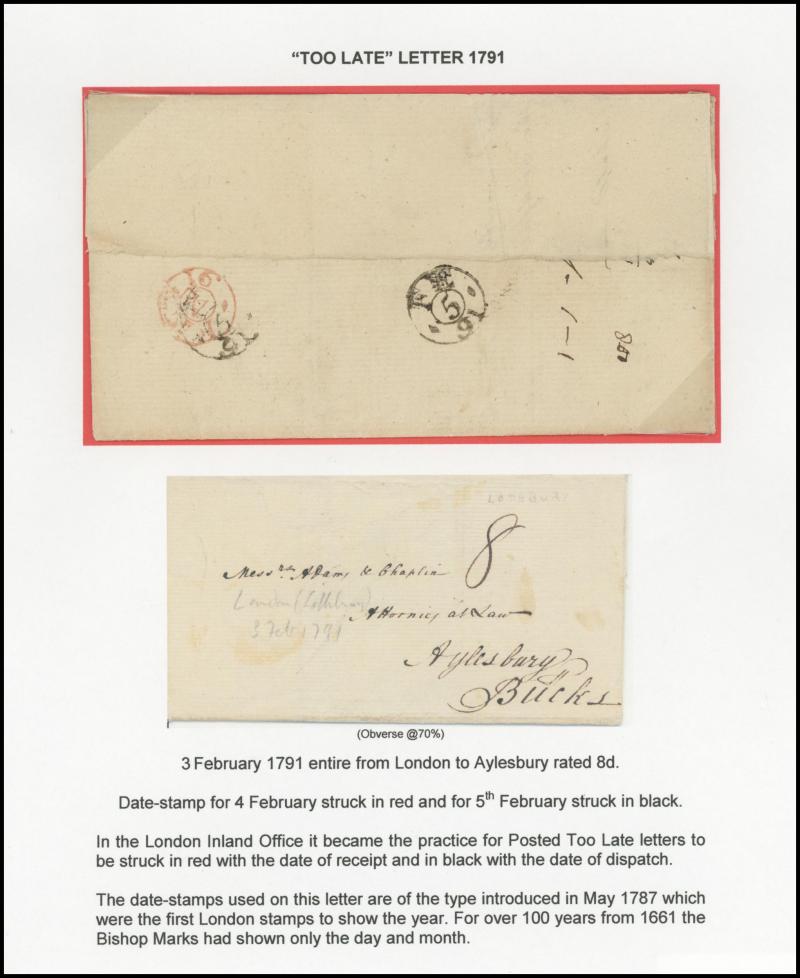 “TOO LATE” LETTER 1791
FE
5
91
8
Messrs. Adams & Chaplin
London (Lothbury)
3 Feb 1791
Attornies at Law
Aylesbury
Bucks
(Obverse @70%)
3 February 1791 entire from London to Aylesbury rated 8d.
Date-stamp for 4 February struck in red and for 5th February struck in black.
In the London Inland Office it became the practice for Posted Too Late letters to
be struck in red with the date of receipt and in black with the date of dispatch.
The date-stamps used on this letter are of the type introduced in May 1787 which
were the first London stamps to show the year. For over 100 years from 1661 the
Bishop Marks had shown only the day and month.